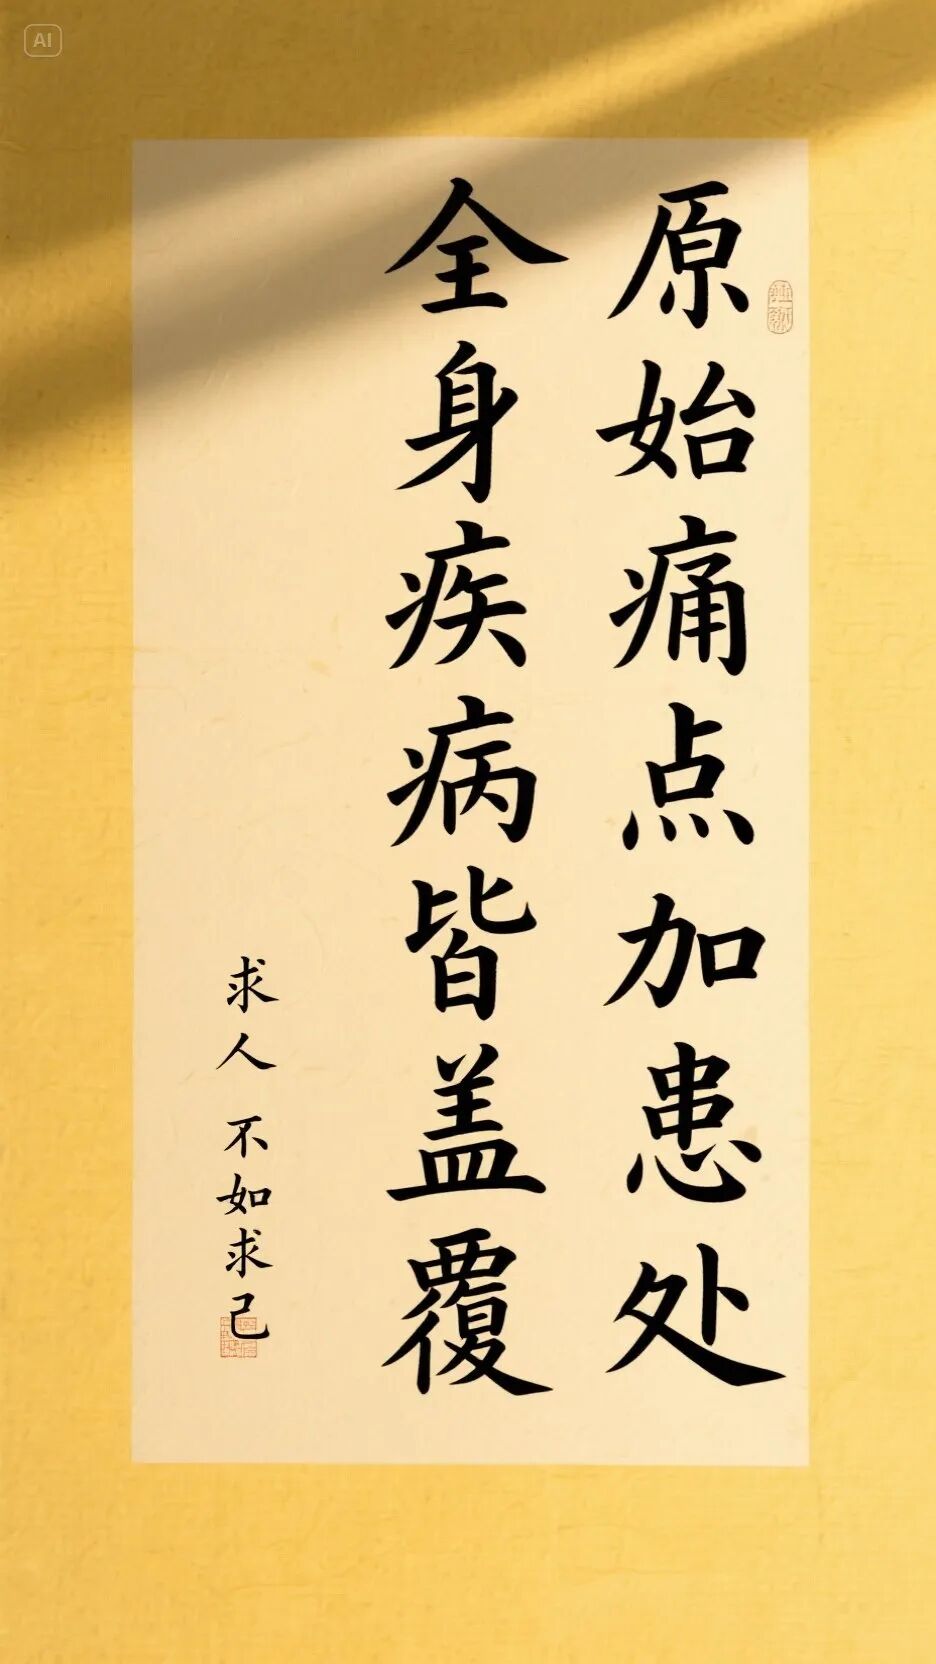 原始痛点加患处
全身疾病皆盖覆
求人不如求己
AI